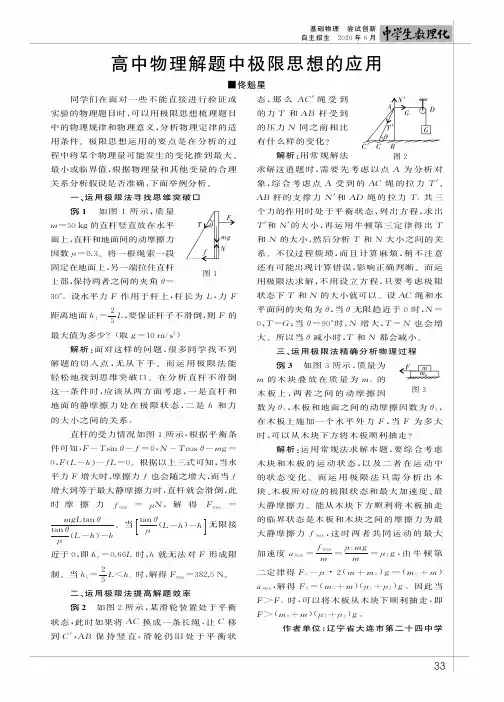 基础物理 尝试创新
自主招生 2020年6月 中学生数理化
高中物理解题中极限思想的应用
■佟魁星
同学们在面对一些不能直接进行验证或
实验的物理题目时,可以用极限思想梳理题目
中的物理规律和物理意义,分析物理定律的适
用条件。极限思想运用的要点是在分析的过
程中将某个物理量可能发生的变化推到最大、
最小或临界值,根据物理量和其他变量的合理
关系分析假设是否准确,下面举例分析。
一、运用极限法寻找思维突破口
例1 如图1所示,质量
m=50 kg的直杆竖直放在水平
面上,直杆和地面间的动摩擦力
因数μ=0.3。将一根绳索一段
固定在地面上,另一端拉住直杆
上部,保持两者之间的夹角θ=
30°。设水平力F作用于杆上,杆长为L,力F
距离地面h₁=2/5L,要保证杆子不滑倒,则F的
最大值为多少?(取g=10 m/s²)
T θ F mg N f
图1
解析:面对这样的问题,很多同学找不到
解题的切入点,无从下手。而运用极限法能
轻松地找到思维突破口。在分析直杆不滑倒
这一条件时,应该从两方面考虑,一是直杆和
地面的静摩擦力处在极限状态,二是h和力
的大小之间的关系。
直杆的受力情况如图1所示,根据平衡条
件可知,F-Tsin θ-f=0,N-Tcos θ-mg=
0,F(L-h)-fL=0。根据以上三式可知,当水
平力F增大时,摩擦力f也会随之增大,而当f
增大到等于最大静摩擦力时,直杆就会滑倒,此
时摩擦力 fmax=μN,解得 Fmax=
mgLtan θ/(tan θ/μ(L-h)-h)。当[tan θ/μ(L-h)-h]无限接
近于0,即h₀=0.66L时,h就无法对F形成限
制。当h₁=2/5L<h₀时,解得Fmax=382.5 N。
二、运用极限法提高解题效率
例2 如图2所示,某滑轮装置处于平衡
状态,此时如果将AC换成一条长绳,让C移
到C′,AB保持竖直,滑轮仍旧处于平衡状
态,那么AC′绳受到
的力T和AB杆受到
的压力N同之前相比
有什么样的变化?
A N′ G D T′ G θ C′ C B
图2
解析:用常规解法
求解这道题时,需要先考虑以点A为分析对
象,综合考虑点A受到的AC绳的拉力T′、
AB杆的支撑力N′和AD绳的拉力T。共三
个力的作用时处于平衡状态,列出方程,求出
T′和N′的大小,再运用牛顿第三定律得出T
和N的大小,然后分析T和N大小之间的关
系。不仅过程烦琐,而且计算麻烦,稍不注意
还有可能出现计算错误,影响正确判断。而运
用极限法求解,不用设立方程,只要考虑极限
状态下T和N的大小就可以。设AC绳和水
平面间的夹角为θ,当θ无限趋近于0时,N=
0,T=G;当θ=90°时,N增大,T=N也会增
大。所以当θ减小时,T和N都会减小。
三、运用极限法精确分析物理过程
例3 如图3所示,质量为
m的木块叠放在质量为m₀的
木板上,两者之间的动摩擦因
数为θ₁,木板和地面之间的动摩擦因数为θ₂,
在木板上施加一个水平外力F,当F为多大
时,可以从木块下方将木板顺利抽走?
F m m₀
图3
解析:运用常规法求解本题,要综合考虑
木块和木板的运动状态,以及二者在运动中
的状态变化。而运用极限法只需分析出木
块、木板所对应的极限状态和最大加速度、最
大静摩擦力。能从木块下方顺利将木板抽走
的临界状态是木板和木块之间的摩擦力为最
大静摩擦力fmax,这时两者共同运动的最大
加速度amax=fmax/m=μ₁mg/m=μ₁g,由牛顿第
二定律得F₀-μ·2(m+m₀)g=(m₀+m)
amax,解得F₀=(m₀+m)(μ₁+μ₂)g。因此当
F>F₀时,可以将木板从木块下顺利抽走,即
F>(m₀+m)(μ₁+μ₂)g。
作者单位:辽宁省大连市第二十四中学
33